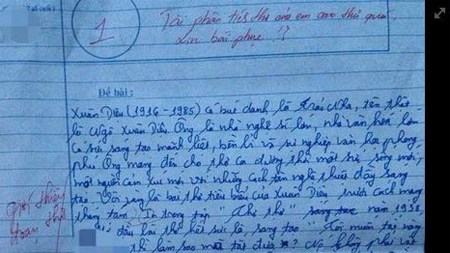 1
Tài phân tích thơ của em cao thủ quá,
xin bái phục !?
Đề bài:
Xuân Diệu (1916-1985) Có bút danh là Trảo Nha, tên thật
là Ngô Xuân Diệu. Ông là nhà nghệ sĩ lớn, nhà văn hóa lớn
có sức sáng tạo mãnh liệt, bền bỉ và sự nghiệp văn học phong
phú Ông mang đến cho thơ ca đương thời một sức sống mới,
một nguồn cảm xúc mới với những cách tân nghệ thuật đầy sáng
tạo. Vội vàng là bài thơ tiêu biểu của Xuân Diệu trước cách mạng
tháng tám. In trong tập "Thơ thơ" sáng tác năm 1938,
đầu bài thơ hết sức là sáng tạo "Tôi muốn tắt nắng
thì làm sao mà tắt được? Nó không phải
Giới thiệu